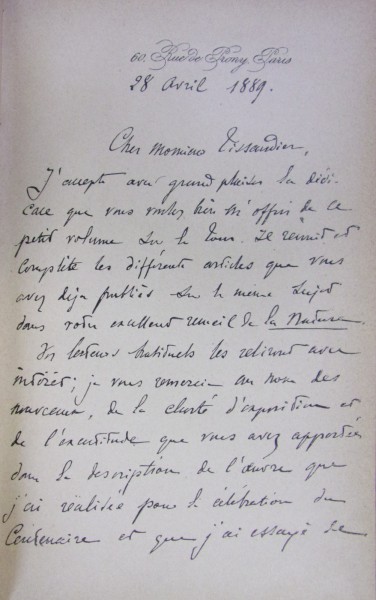 60, Rue de Prony, Paris
28 Avril 1889.
Cher Monsieur Tissandier,
J'accepte avec grand plaisir la dédi-
cace que vous voulez bien m'offrir de ce
petit volume sur la Tour. Il réunit et
complète les différents articles que vous
avez déjà publiés sur le même sujet
dans votre excellent recueil de la Nature.
Vos lecteurs habituels les reliront avec
intérêt; je vous remercie au nom des
nouveaux, de la clarté d'exposition et
de l'exactitude que vous avez apportées
dans la description de l'œuvre que
j'ai réalisée pour la célébration du
Centenaire et que j'ai essayé de